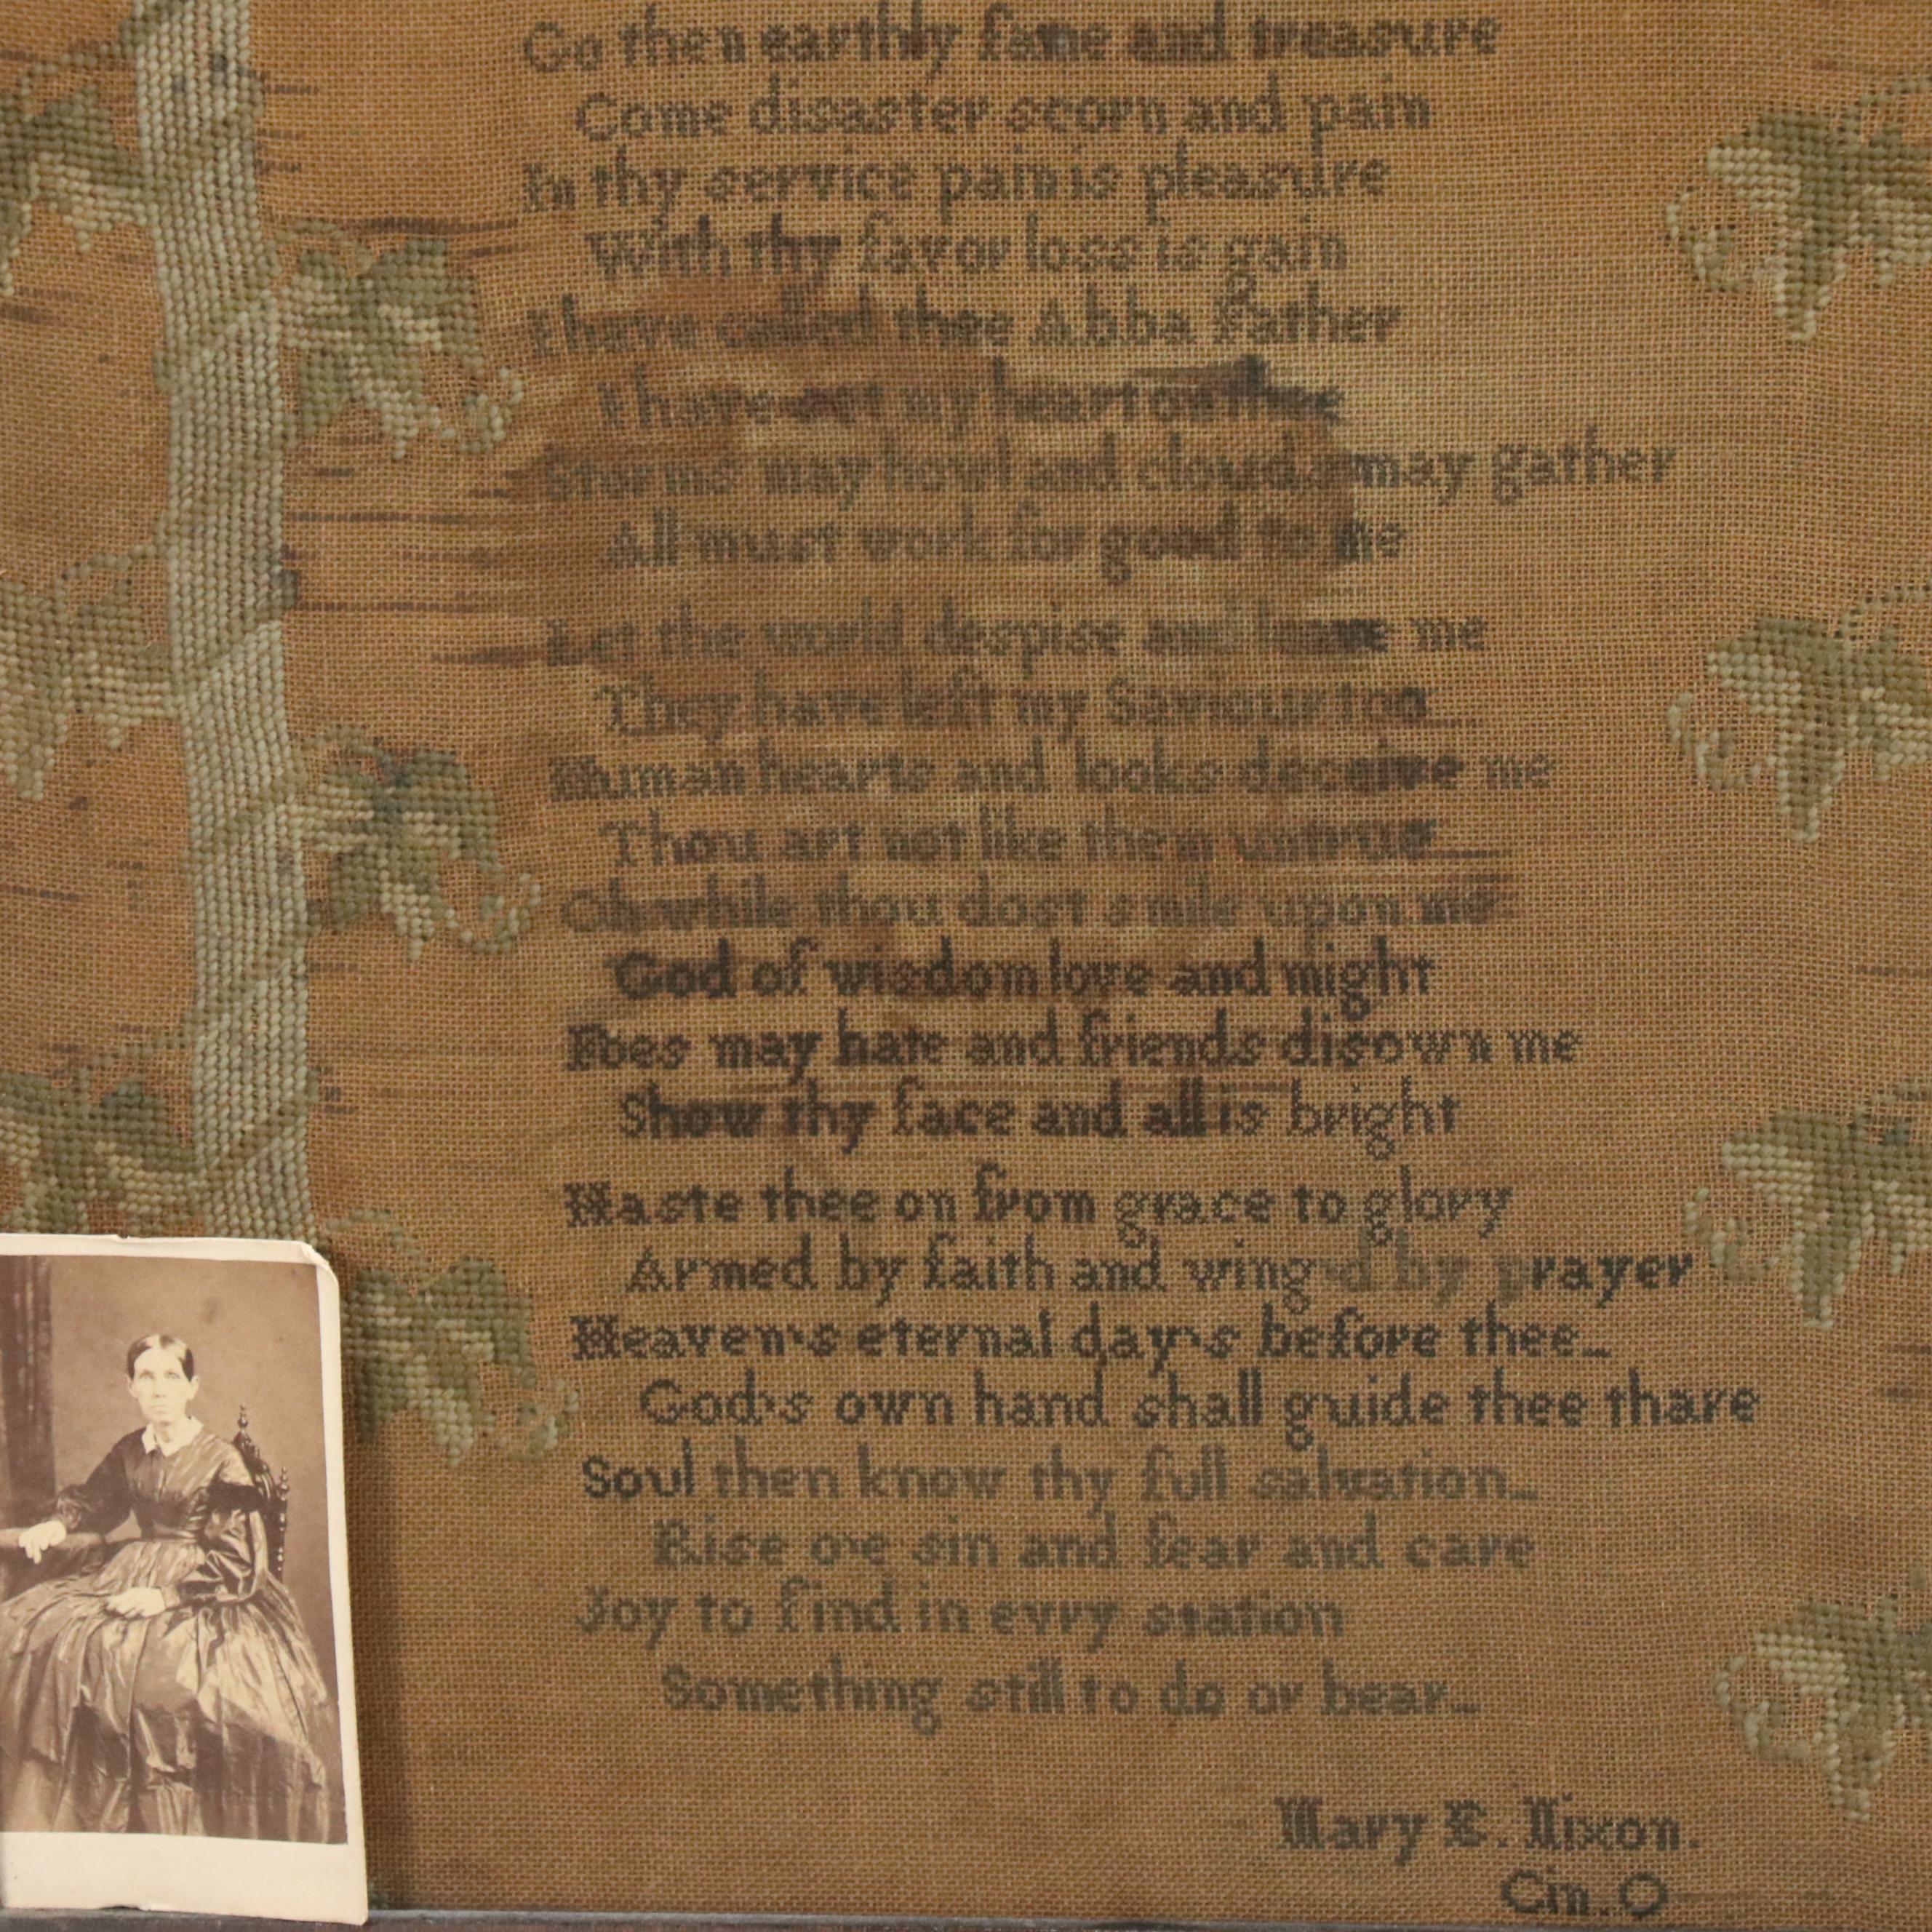 Go then earthly fame and treasure
Come disaster scorn and pain
In thy service pain is pleasure
With thy favor loss is gain
I have called thee Abba Father
I have set my heart on thee
Storms may howl and clouds may gather
All must work for good to me
Let the world despise and leave me
They have left my Saviour too
Human hearts and looks deceive me
Thou art not like them untrue
Oh while thou dost smile upon me
God of wisdom love and might
Foes may hate and friends disown me
Show thy face and all is bright
Haste thee on from grace to glory
Armed by faith and wing'd by prayer
Heaven's eternal day's before thee
God's own hand shall guide thee thare
Soul then know thy full salvation
Rise o'e sin and fear and care
Joy to find in evry station
Something still to do or bear
Mary E. Nixon.
Cin. O